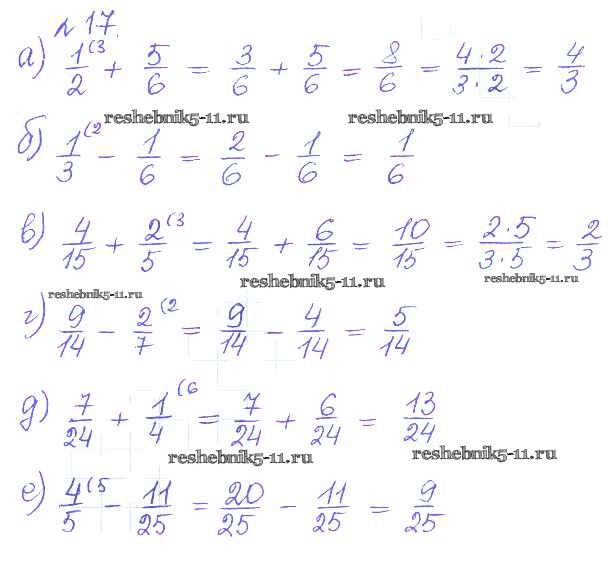 № 17.
а) 1/2 (3 + 5/6 = 3/6 + 5/6 = 8/6 = 4·2/3·2 = 4/3
reshebnik5-11.ru reshebnik5-11.ru
б) 1/3 (2 − 1/6 = 2/6 − 1/6 = 1/6
в) 4/15 + 2/5 (3 = 4/15 + 6/15 = 10/15 = 2·5/3·5 = 2/3
reshebnik5-11.ru reshebnik5-11.ru reshebnik5-11.ru
г) 9/14 − 2/7 (2 = 9/14 − 4/14 = 5/14
д) 7/24 + 1/4 (6 = 7/24 + 6/24 = 13/24
reshebnik5-11.ru reshebnik5-11.ru
е) 4/5 (5 − 11/25 = 20/25 − 11/25 = 9/25